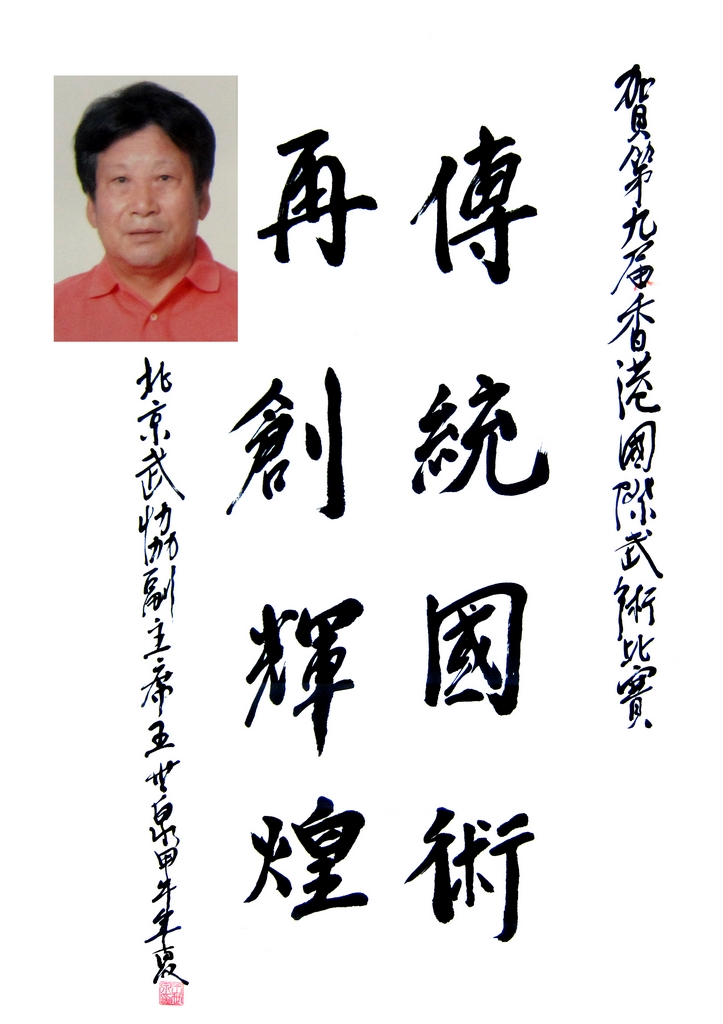 賀第九届香港國際武術比賽
傳統國術
再創輝煌
北京武協副主席王世泉甲午年夏